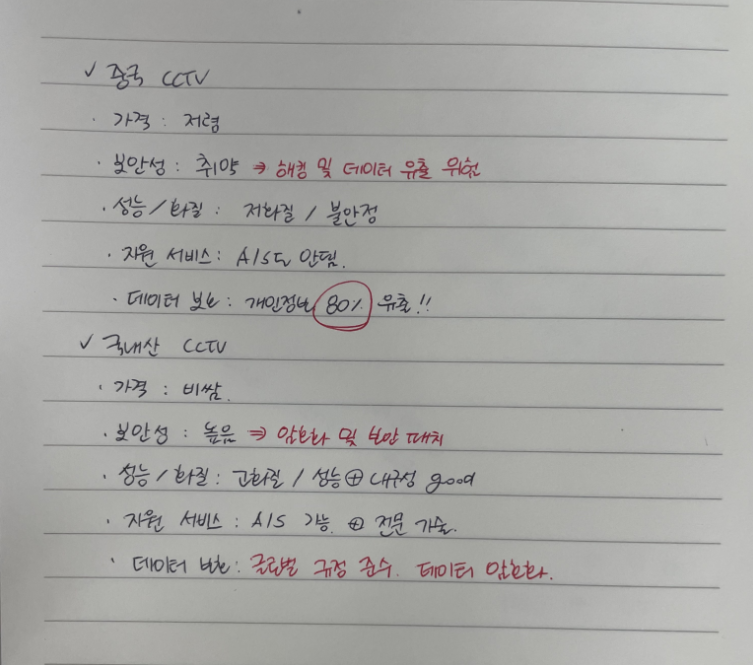 ✓ 중국 CCTV
· 가격 : 저렴
· 보안성 : 취약 ⇒ 해킹 및 데이터 유출 위험
· 성능/화질 : 저화질 / 불안정
· 지원 서비스 : A/S도 안됨.
· 데이터 보호 : 개인정보 80% 유출!!
✓ 국내산 CCTV
· 가격 : 비쌈.
· 보안성 : 높음 ⇒ 암호화 및 보안 패치
· 성능/화질 : 고화질 / 성능 ⊕ 내구성 good
· 지원 서비스 : A/S 가능. ⊕ 전문 기술.
· 데이터 보호 : 글로벌 규정 준수. 데이터 암호화.